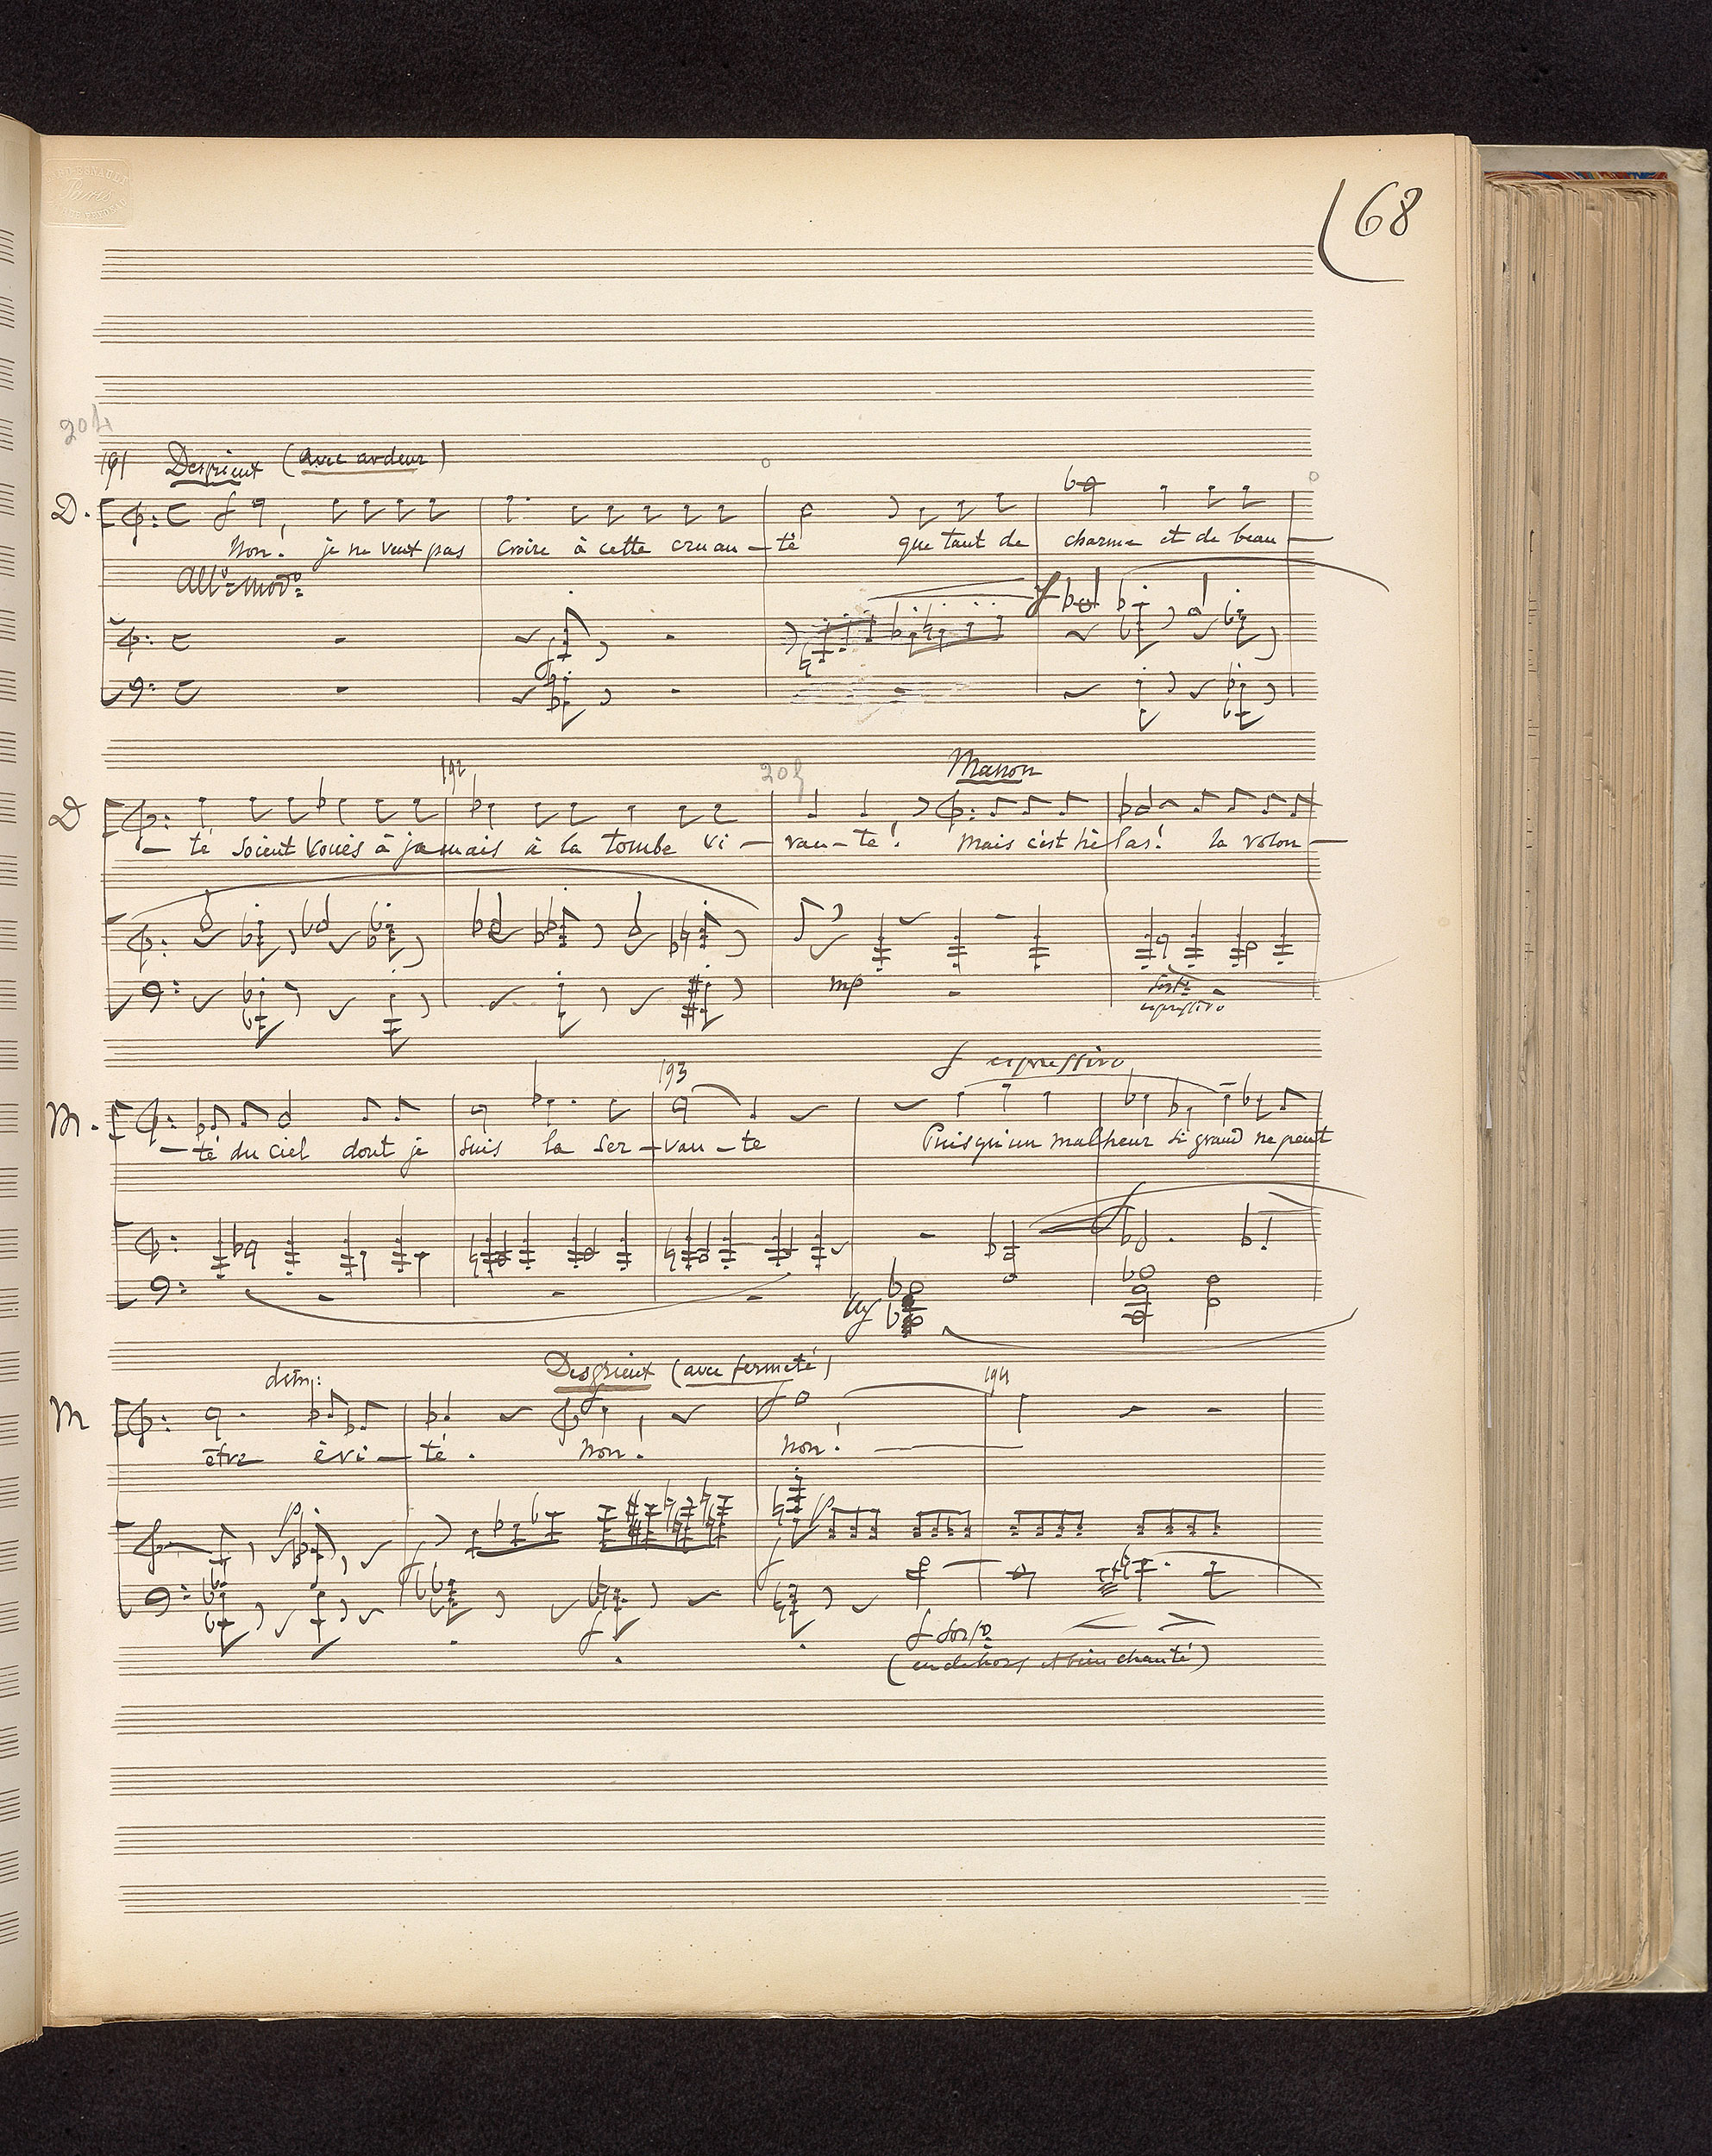 68
204
191 Desgrieux (avec ardeur)
D. Non! je ne veut pas croire à cette cruau-té que tant de charme et de beau-
All⁰ mod⁰
f
192 205 Manon
D -té soient voués à jamais à la tombe vi-van-te! Mais c'est hélas! la volon-
mp
expressivo
193 f expressivo
M. -té du ciel dont je suis la ser-van-te Puisqu'un malheur si grand ne peut
dim: Desgrieux (avec fermeté) 194
M être évi-té. Non! Non!
p
f
f
(en dehors et bien chanté)